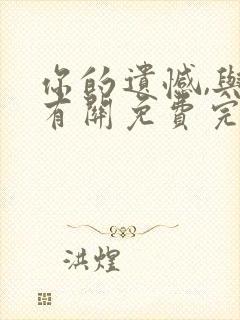 你的遗憾,与
有关免费完
洪煌